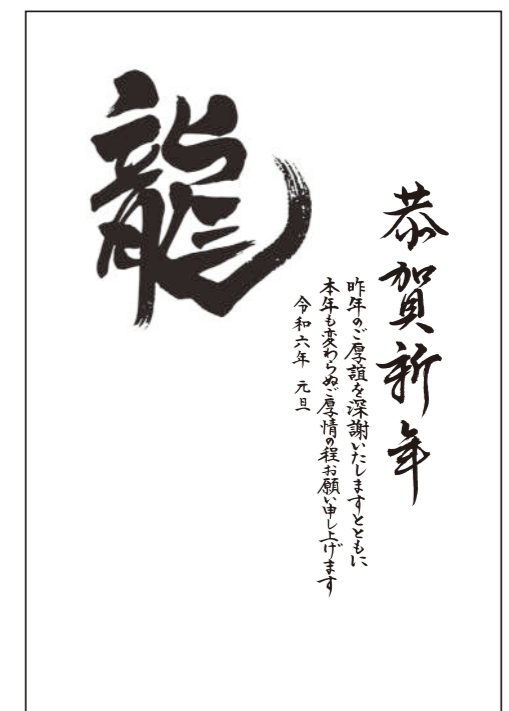 恭賀新年
昨年のご厚誼を深謝いたしますとともに
本年も変わらぬご厚情の程お願い申し上げます
令和六年 元旦
龍